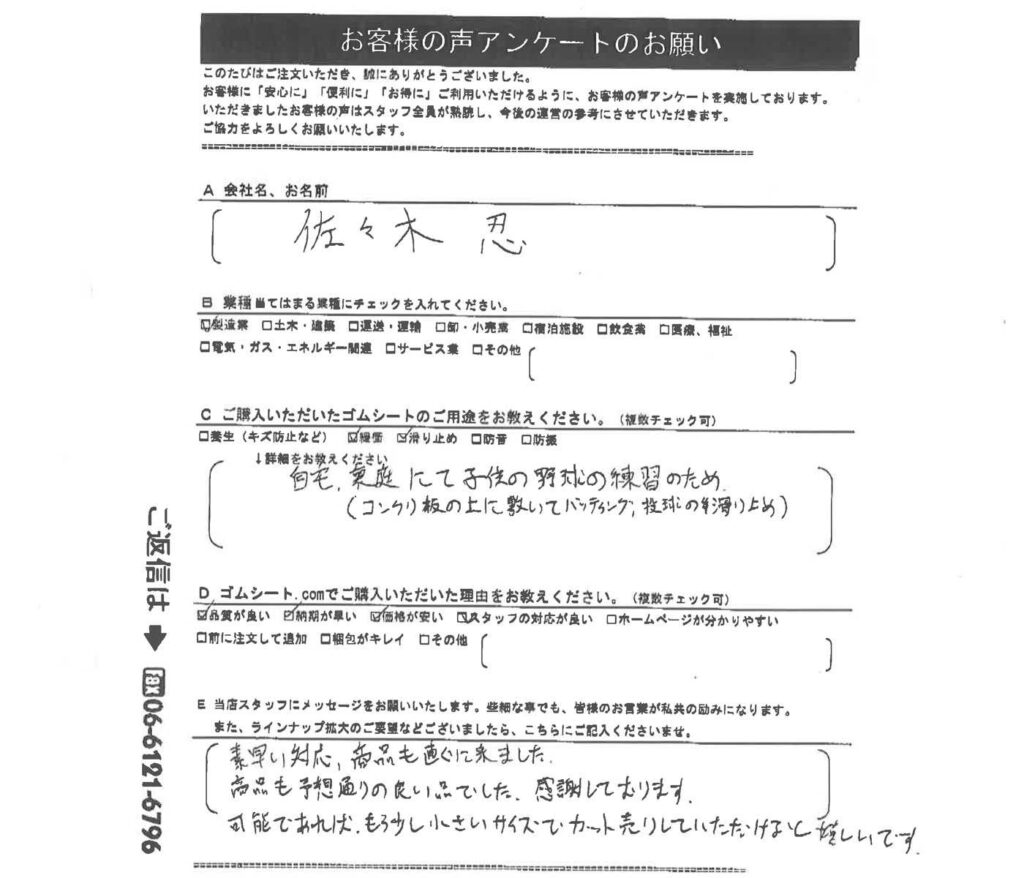 お客様の声アンケートのお願い
このたびはご注文いただき、誠にありがとうございました。
お客様に「安心に」「便利に」「お得に」ご利用いただけるように、お客様の声アンケートを実施しております。
いただきましたお客様の声はスタッフ全員が熟読し、今後の運営の参考にさせていただきます。
ご協力をよろしくお願いいたします。
A 会社名、お名前
佐々木 忍
B 業種当てはまる業種にチェックを入れてください。
☑製造業 □土木・建築 □運送・運輸 □卸・小売業 □宿泊施設 □飲食業 □医療、福祉
□電気・ガス・エネルギー関連 □サービス業 □その他
C ご購入いただいたゴムシートのご用途をお教えください。(複数チェック可)
□養生(キズ防止など) ☑緩衝 ☑滑り止め □防音 □防振
↓詳細をお教えください
自宅、家庭にて子供の野球の練習のため
(コンクリ板の上に敷いてバッティング、投球の滑り止め)
D ゴムシート.comでご購入いただいた理由をお教えください。(複数チェック可)
☑品質が良い ☑納期が早い ☑価格が安い ☑スタッフの対応が良い □ホームページが分かりやすい
□前に注文して追加 □梱包がキレイ □その他
E 当店スタッフにメッセージをお願いいたします。些細な事でも、皆様のお言葉が私共の励みになります。
また、ラインナップ拡大のご要望などございましたら、こちらにご記入くださいませ。
素早い対応、商品も直ぐに来ました。
商品も予想通りの良い品でした。感謝しております。
可能であれば、もう少し小さいサイズでカット売りしていただけると嬉しいです。
ご返信は ➡ FAX06-6121-6796